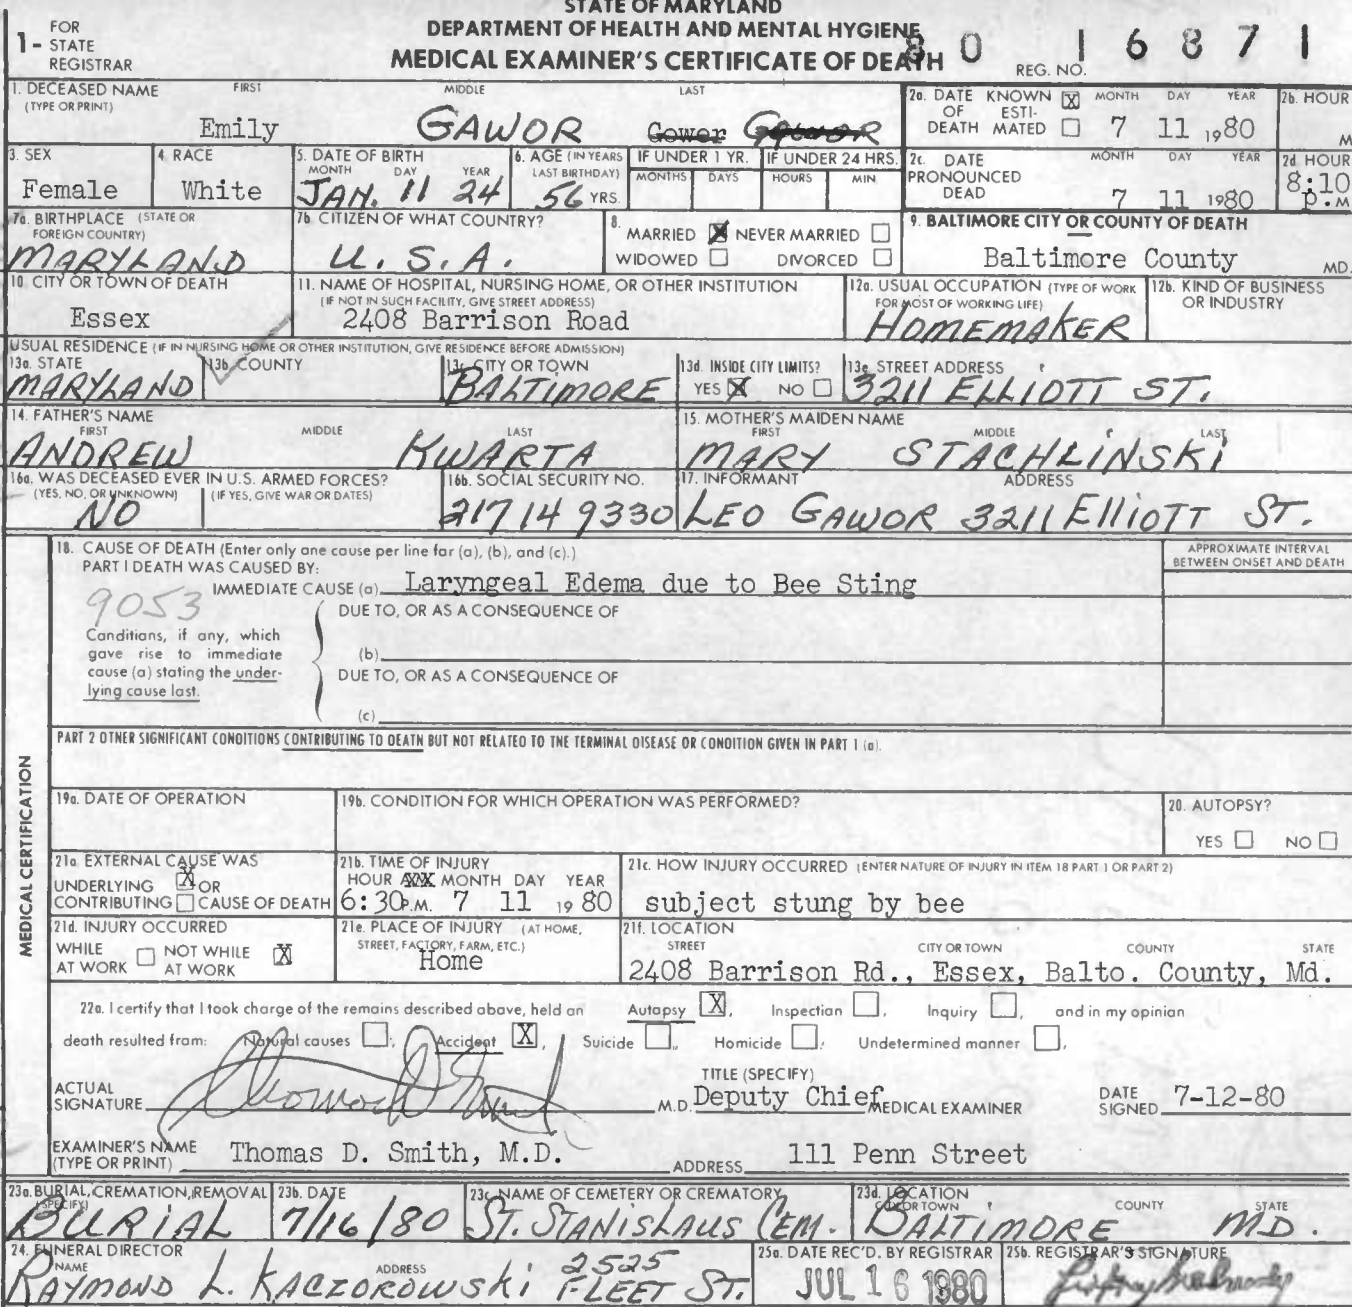 STATE OF MARYLAND
DEPARTMENT OF HEALTH AND MENTAL HYGIENE
MEDICAL EXAMINER'S CERTIFICATE OF DEATH
1- FOR STATE REGISTRAR
REG. NO. 80 16871
1. DECEASED NAME (TYPE OR PRINT) FIRST MIDDLE LAST
Emily GAWOR Gower
2a. DATE OF DEATH KNOWN X ESTIMATED MONTH DAY YEAR
7 11 1980
2b. HOUR M
3. SEX
Female
4. RACE
White
5. DATE OF BIRTH MONTH DAY YEAR
JAN. 11 24
6. AGE (IN YEARS LAST BIRTHDAY)
56 YRS.
IF UNDER 1 YR. MONTHS DAYS
IF UNDER 24 HRS. HOURS MIN
2c. DATE PRONOUNCED DEAD MONTH DAY YEAR
7 11 1980
2d HOUR
8:10 P.M
7a. BIRTHPLACE (STATE OR FOREIGN COUNTRY)
MARYLAND
7b. CITIZEN OF WHAT COUNTRY?
U.S.A.
8. MARRIED X NEVER MARRIED
WIDOWED DIVORCED
9. BALTIMORE CITY OR COUNTY OF DEATH
Baltimore County MD.
10. CITY OR TOWN OF DEATH
Essex
11. NAME OF HOSPITAL, NURSING HOME, OR OTHER INSTITUTION
(IF NOT IN SUCH FACILITY, GIVE STREET ADDRESS)
2408 Barrison Road
12a. USUAL OCCUPATION (TYPE OF WORK FOR MOST OF WORKING LIFE)
HOMEMAKER
12b. KIND OF BUSINESS OR INDUSTRY
USUAL RESIDENCE (IF IN NURSING HOME OR OTHER INSTITUTION, GIVE RESIDENCE BEFORE ADMISSION)
13a. STATE
MARYLAND
13b. COUNTY
13c. CITY OR TOWN
BALTIMORE
13d. INSIDE CITY LIMITS?
YES X NO
13e. STREET ADDRESS
3211 ELLIOTT ST.
14. FATHER'S NAME FIRST MIDDLE LAST
ANDREW KWARTA
15. MOTHER'S MAIDEN NAME FIRST MIDDLE LAST
MARY STACHLINSKI
16a. WAS DECEASED EVER IN U.S. ARMED FORCES?
(YES, NO, OR UNKNOWN) (IF YES, GIVE WAR OR DATES)
NO
16b. SOCIAL SECURITY NO.
217 14 9330
17. INFORMANT ADDRESS
LEO GAWOR 3211 ElliOTT ST.
MEDICAL CERTIFICATION
18. CAUSE OF DEATH (Enter only one cause per line for (a), (b), and (c).)
PART I DEATH WAS CAUSED BY:
APPROXIMATE INTERVAL BETWEEN ONSET AND DEATH
IMMEDIATE CAUSE (a) Laryngeal Edema due to Bee Sting
9053
DUE TO, OR AS A CONSEQUENCE OF
Conditions, if any, which gave rise to immediate cause (a) stating the underlying cause last.
(b)
DUE TO, OR AS A CONSEQUENCE OF
(c)
PART 2 OTHER SIGNIFICANT CONDITIONS CONTRIBUTING TO DEATH BUT NOT RELATED TO THE TERMINAL DISEASE OR CONDITION GIVEN IN PART 1 (a).
19a. DATE OF OPERATION
19b. CONDITION FOR WHICH OPERATION WAS PERFORMED?
20. AUTOPSY?
YES NO
21a. EXTERNAL CAUSE WAS
UNDERLYING X OR
CONTRIBUTING CAUSE OF DEATH
21b. TIME OF INJURY
HOUR MONTH DAY YEAR
6:30 P.M. 7 11 1980
21c. HOW INJURY OCCURRED (ENTER NATURE OF INJURY IN ITEM 18 PART 1 OR PART 2)
subject stung by bee
21d. INJURY OCCURRED
WHILE AT WORK NOT WHILE AT WORK X
21e. PLACE OF INJURY (AT HOME, STREET, FACTORY, FARM, ETC.)
Home
21f. LOCATION
STREET CITY OR TOWN COUNTY STATE
2408 Barrison Rd., Essex, Balto. County, Md.
22a. I certify that I took charge of the remains described above, held an Autopsy X, Inspection , Inquiry , and in my opinion
death resulted from: Natural causes , Accident X, Suicide , Homicide , Undetermined manner ,
ACTUAL SIGNATURE M.D.
TITLE (SPECIFY)
Deputy Chief MEDICAL EXAMINER
DATE SIGNED 7-12-80
EXAMINER'S NAME (TYPE OR PRINT) Thomas D. Smith, M.D. ADDRESS 111 Penn Street
23a. BURIAL, CREMATION, REMOVAL (SPECIFY)
BURIAL
23b. DATE
7/16/80
23c. NAME OF CEMETERY OR CREMATORY
ST. STANISLAUS CEM.
23d. LOCATION CITY OR TOWN COUNTY STATE
BALTIMORE MD.
24. FUNERAL DIRECTOR
NAME ADDRESS
RAYMOND L. KACZOROWSKi 2525 FLEET ST.
25a. DATE REC'D. BY REGISTRAR
JUL 16 1980
25b. REGISTRAR'S SIGNATURE